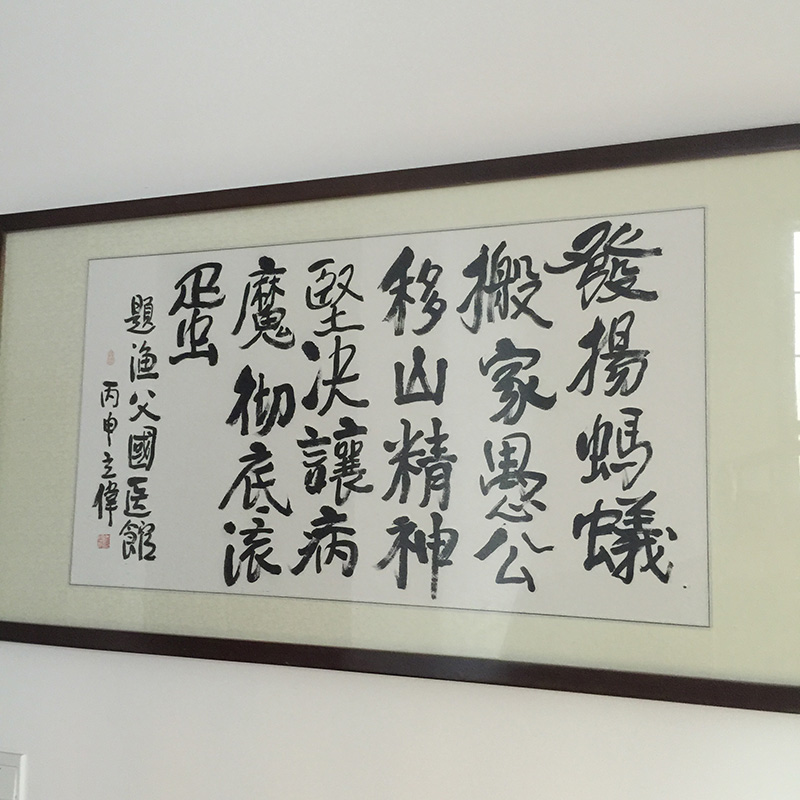 發揚螞蟻
搬家愚公
移山精神
堅决讓病
魔彻底滚
蛋
題渔父國医館
丙申立偉